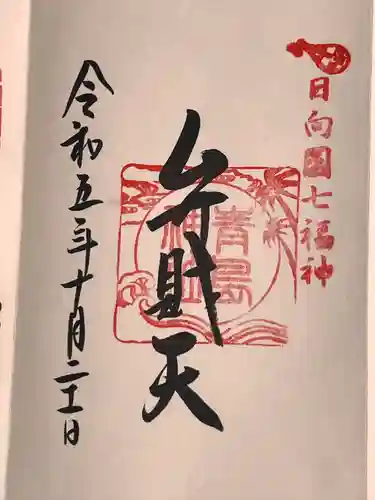 日向国七福神
弁財天
青島神社
令和五年十月二十二日